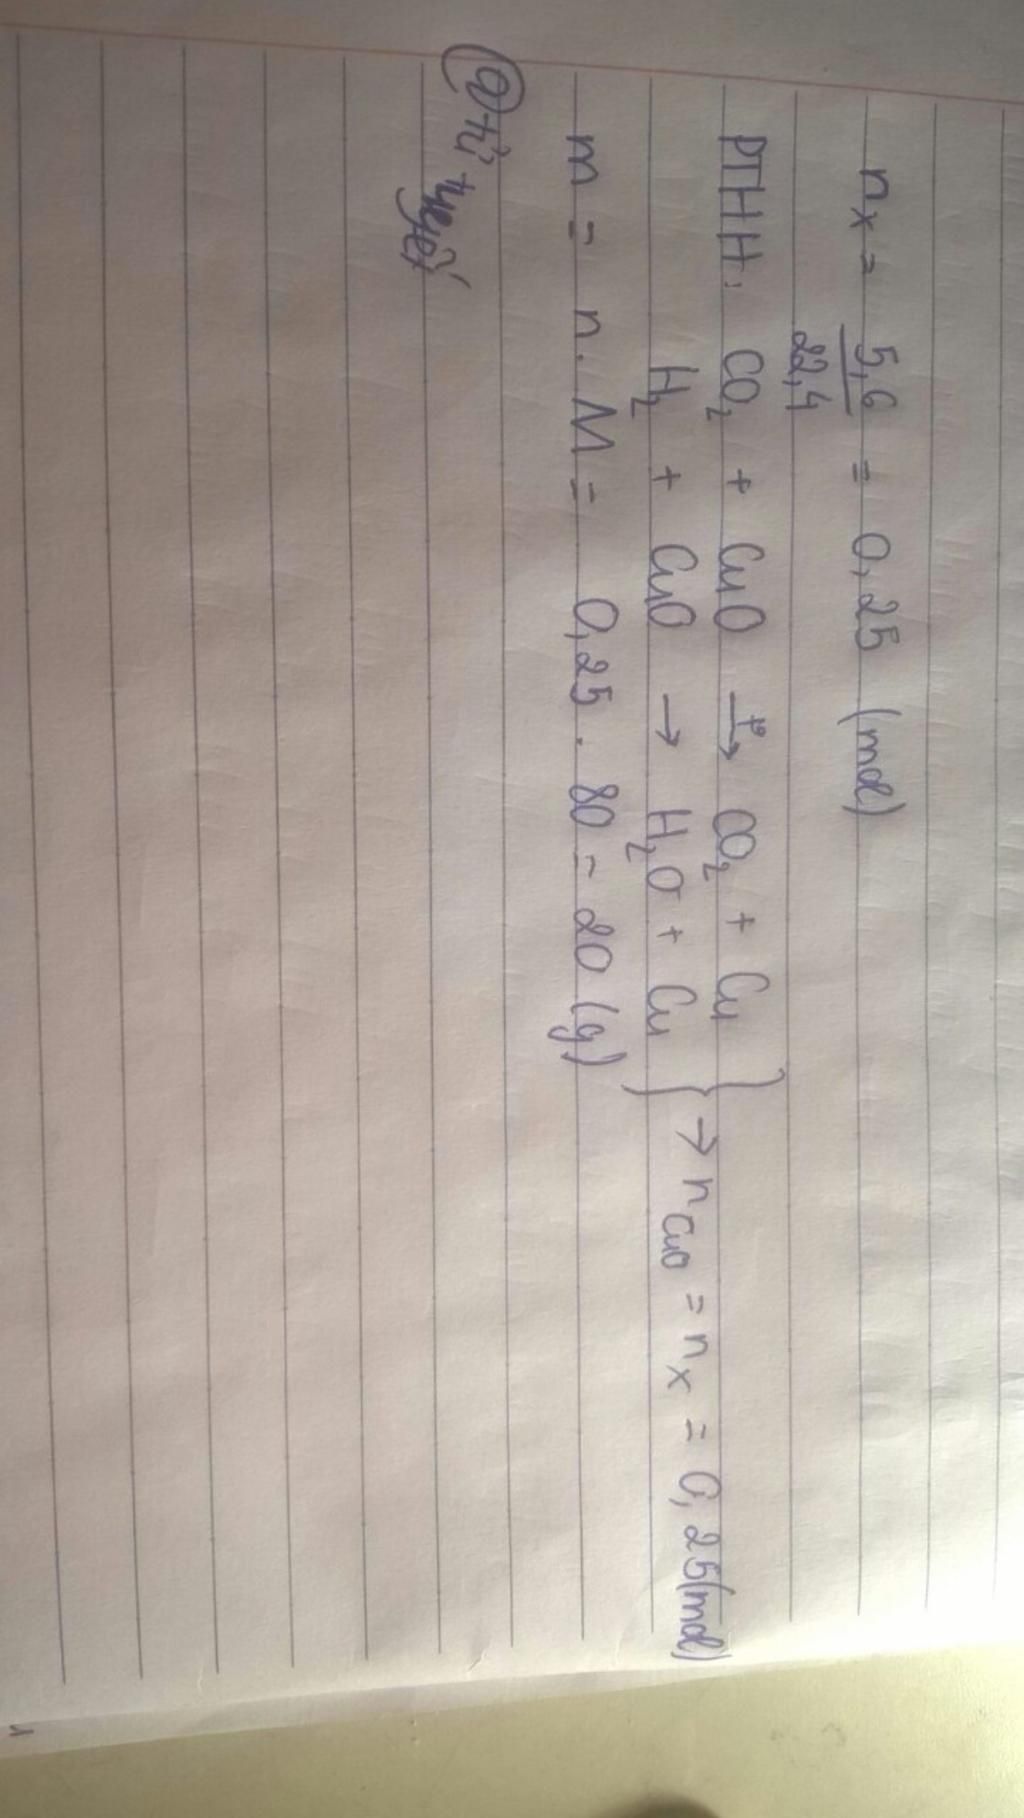 nₓ = 5,6 / 22,4 = 0,25 (mol)
PTHH: CO₂ + CuO →(t°) CO₂ + Cu
H₂ + CuO → H₂O + Cu } → n_CuO = nₓ = 0,25 (mol)
m = n . M = 0,25 . 80 = 20 (g)